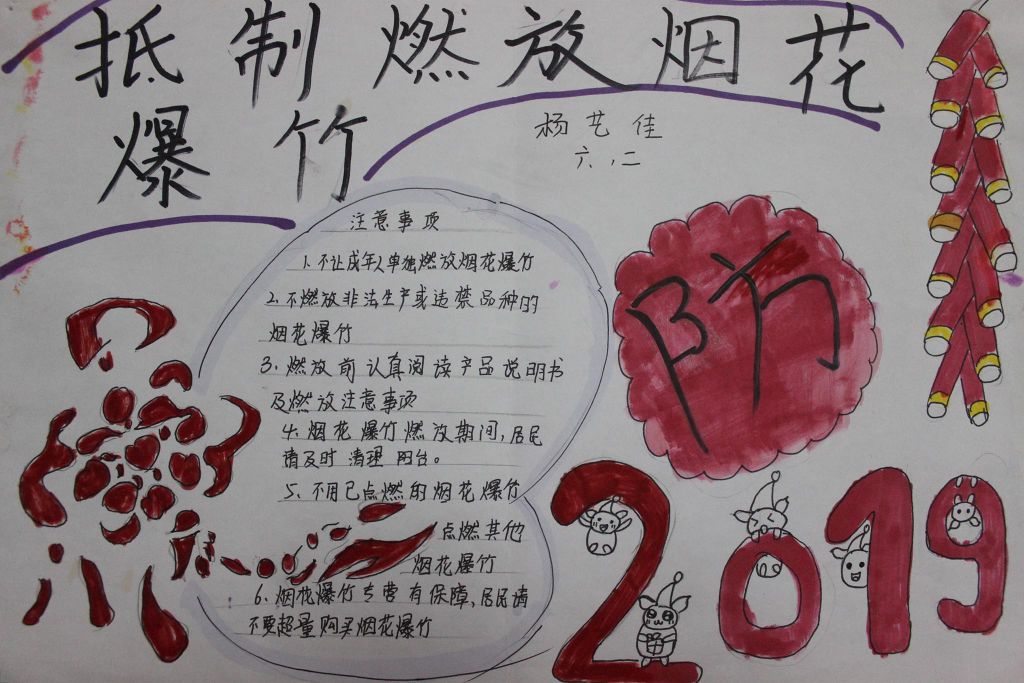 抵制燃放烟花
爆竹
杨艺佳
六.二
注意事项
1.不让成年人单独燃放烟花爆竹
2.不燃放非法生产或违禁品种的
烟花爆竹
3.燃放前认真阅读产品说明书
及燃放注意事项
4.烟花爆竹燃放期间,居民
请及时清理阳台。
5.不用已点燃的烟花爆竹
点燃其他
烟花爆竹
6.烟花爆竹专营有保障,居民请
不要超量购买烟花爆竹
防
2019